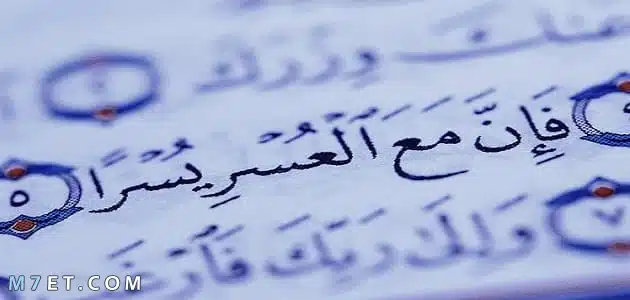 عَنكَ وِزْرَكَ
فَإِنَّ مَعَ ٱلْعُسْرِ يُسْرًا ٥
٧ وَإِلَىٰ رَبِّكَ
M7ET.COM